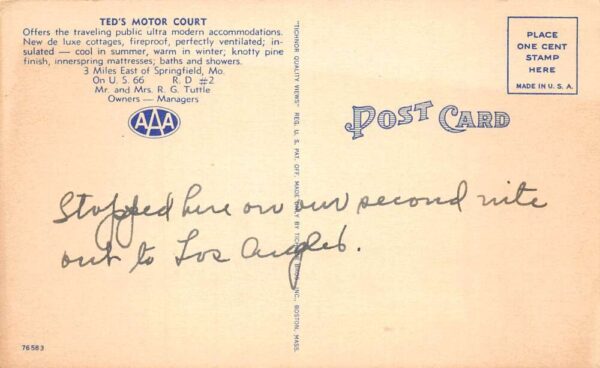 TED'S MOTOR COURT
Offers the traveling public ultra modern accommodations.
New de luxe cottages, fireproof, perfectly ventilated; in-
sulated — cool in summer, warm in winter; knotty pine
finish, innerspring mattresses; baths and showers.
3 Miles East of Springfield, Mo.
On U. S. 66 R. D #2
Mr. and Mrs. R. G. Tuttle
Owners — Managers
AAA
"TICHNOR QUALITY VIEWS" REG. U. S. PAT. OFF. MADE ONLY BY TICHNOR BROS., INC., BOSTON, MASS.
POST CARD
PLACE
ONE CENT
STAMP
HERE
MADE IN U. S. A.
Stopped here on our second nite
out to Los Angles.
76583